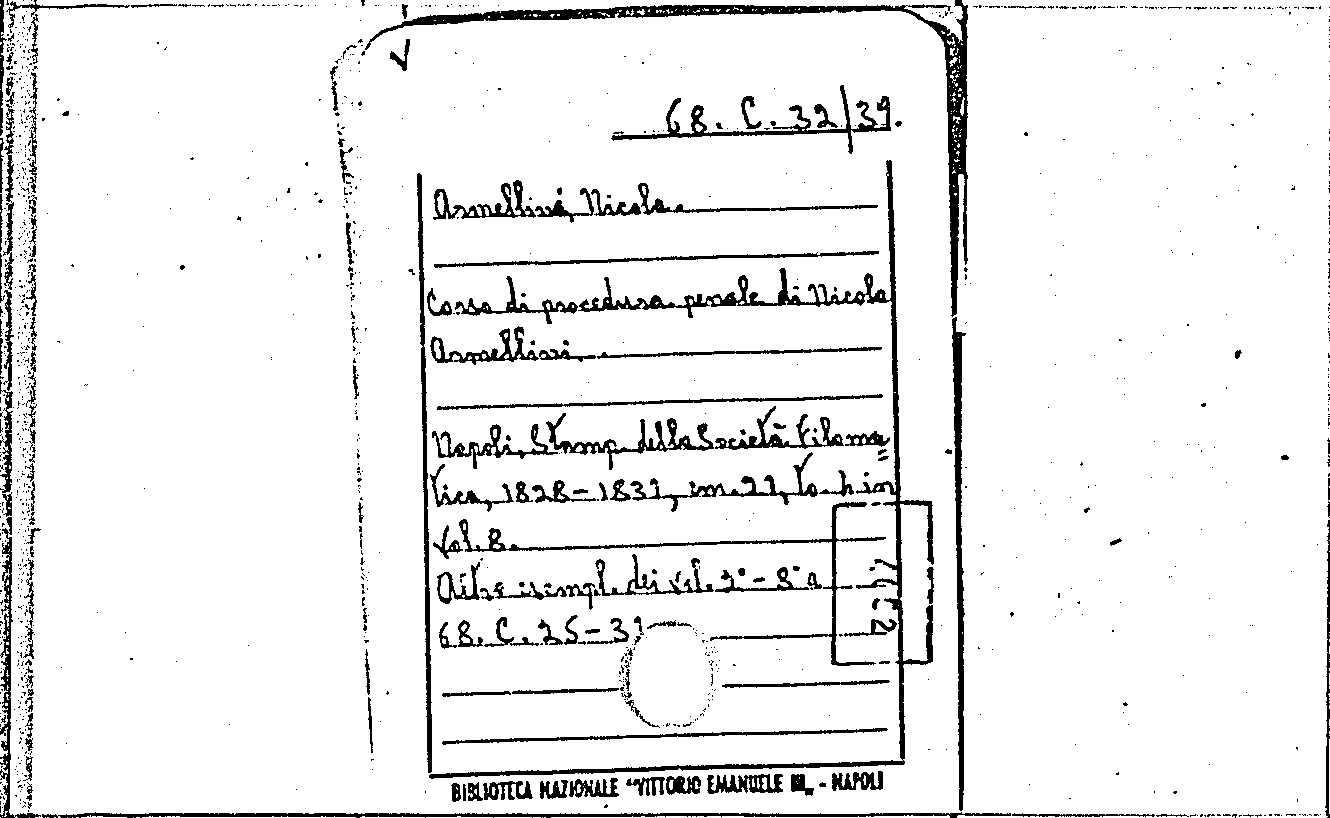 68. C. 32/39.
Armellini, Nicola.
Corso di procedura penale di Nicola
Armellini.
Napoli, Stamp. della Società Filoma=
tica, 1828-1831, in cm. 21, to. 4 in
vol. 8.
Altro esempl. dei vol. 1°-8° a
68. C. 25-31
BIBLIOTECA NAZIONALE "VITTORIO EMANUELE III„ - NAPOLI